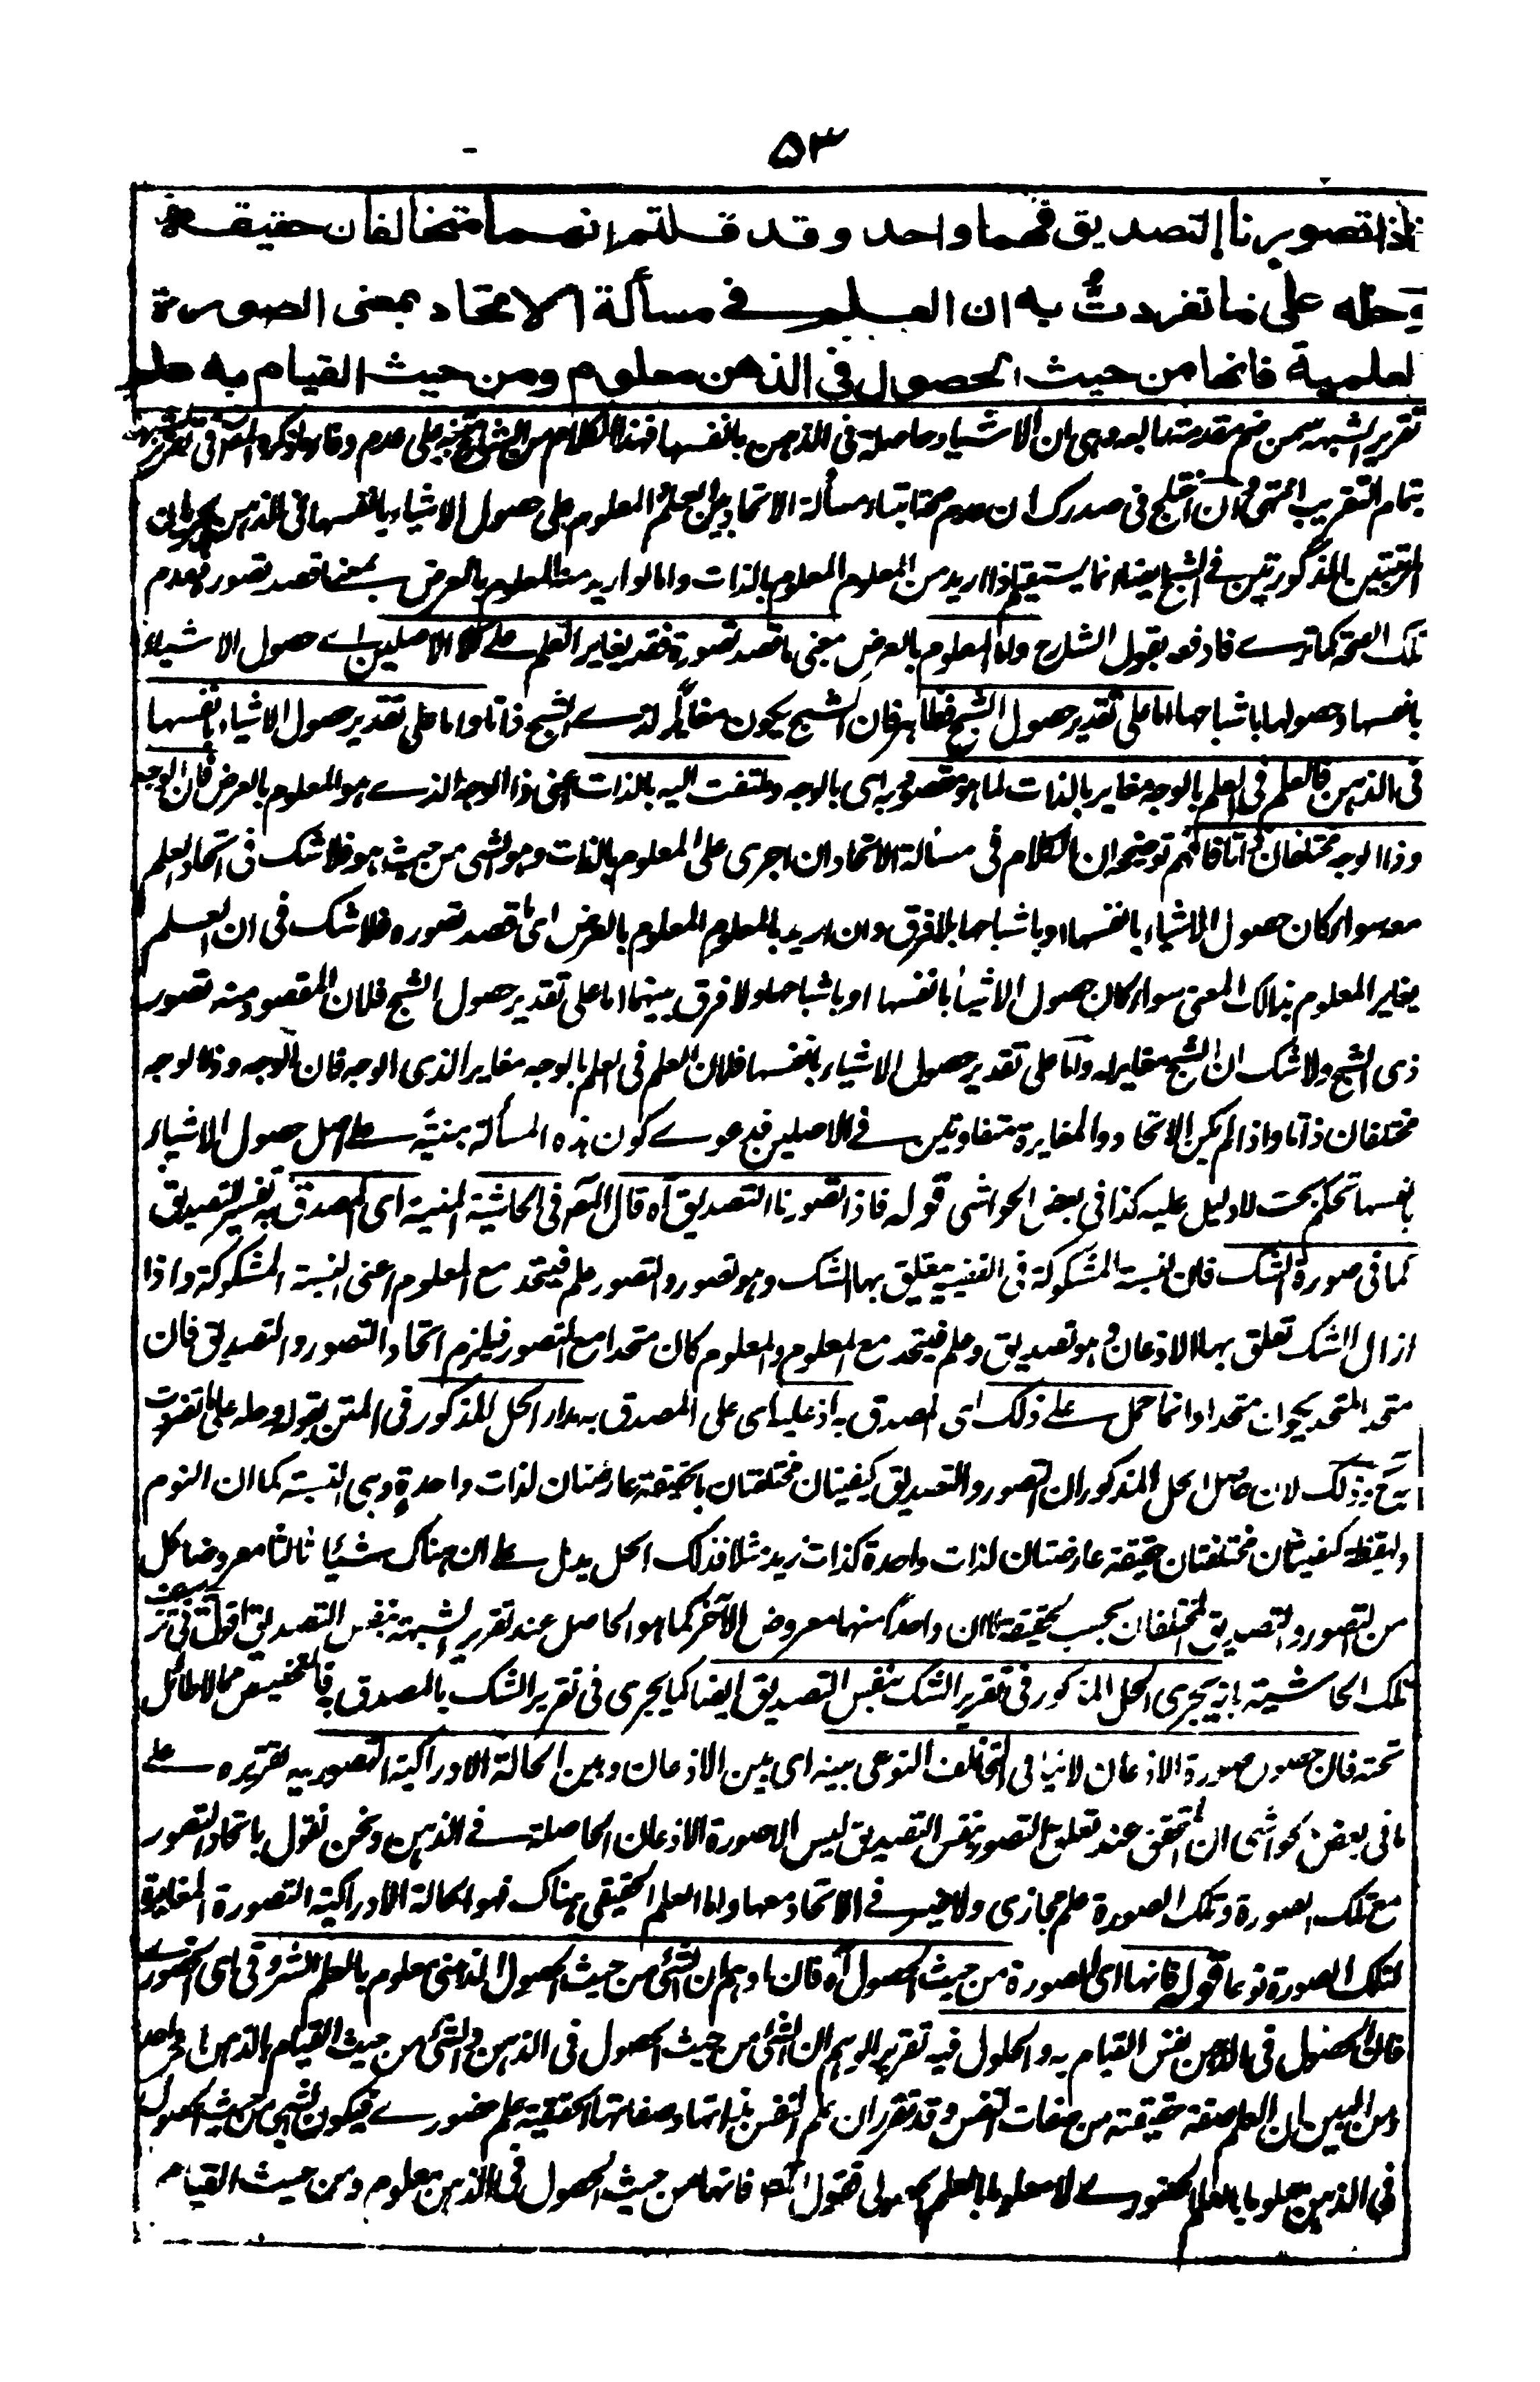 ۵۳
فاذا تصورنا التصديق فهما واحد وقد قلتم انهما متخالفان حقيقة
وحله على ما تفردت به ان العلم في مسألة الاتحاد بمعنى الصورة
العلمية فانها من حيث الحصول في الذهن معلوم ومن حيث القيام به علم
تقرير الشبهة من ضم مقدمة رابعة وهى ان الاشياء حاصلة فى الذهن بانفسها فهذا الكلام من الشارح على عدم
بتمام التقريب انتهى وان اختلج فى صدرك ان عدم ابتناء مسألة الاتحاد بين العلم والمعلوم على حصول الاشياء بانفسها فى الذهن
المذكورتين في الشبح ايضا انما يستقيم اذا اريد من المعلوم المعلوم بالذات واما لو اريد منه المعلوم بالعرض بمعنى ما قصد تصوره فعدم
تلك الصحة كما ترى فادفعه بقول الشارح واما المعلوم بالعرض بمعنى ما قصد تصوره فقد يغاير العلم على كلا الاصلين اے حصول الاشياء
بانفسها وحصولها باشباحها اما على تقدير حصول الشبح فظاهر فان الشبح يكون مغايرا لذے الشبح ذاتا واما على تقدير حصول الاشياء بانفسها
فى الذهن فالعلم فى العلم بالوجه مغاير بالذات لما هو مقصود به اى بالوجه وملتفت اليه بالذات اعنى ذا الوجه الذے هو المعلوم بالعرض فان الوجه
وذا الوجه مختلفان ذاتا فافهم توضيحه ان الكلام فى مسألة الاتحاد ان اجرى على المعلوم بالذات وهو الشئ من حيث هو فلا شك فى اتحاد العلم
معه سواء كان حصول الاشياء بانفسها او باشباحها بلا فرق وان اريد بالمعلوم المعلوم بالعرض اى ما قصد تصوره فلا شك فى ان العلم
يغاير المعلوم بذلك المعنى سواء كان حصول الاشياء بانفسها او باشباحها ولا فرق بينهما اما على تقدير حصول الشبح فلان المقصود منه تصور
ذى الشبح ولا شك ان الشبح مغاير له واما على تقدير حصول الاشياء بانفسها فلان العلم فى العلم بالوجه مغاير الذى الوجه فان الوجه وذا الوجه
مختلفان ذاتا واذا لم يكن الاتحاد والمغايرة متفاوتين فے الاصلين فدعوے كون هذه المسألة مبنية علے اصل حصول الاشياء
بانفسها تحكم بحت لا دليل عليه كذا فى بعض الحواشى قوله فاذا تصورنا التصديق آه قال المصـ فى الحاشية المنهية اى المصدق به تفسير للتصديق
كما فى صورة الشك فان النسبة المشكوكة فى القضية يتعلق بها الشك وهو تصور والتصور علم فيتحد مع المعلوم اعنى النسبة المشكوكة واذا
ازال الشك تعلق بها الاذعان وهو تصديق وعلم فيتحد مع المعلوم والمعلوم كان متحدا مع التصور فيلزم اتحاد التصور والتصديق فان
متحد المتحد يكون متحدا وانما حمل علے ذلك اى المصدق به اذ عليه اى على المصدق به مدار الحل المذكور فى المتن بقوله وحله على ما تفردت
به وذلك لان حاصل الحل المذكور ان التصور والتصديق كيفيتان مختلفتان بالحقيقة عارضتان لذات واحدة وهى النسبة كما ان النوم
واليقظة كيفيتان مختلفتان حقيقة عارضتان لذات واحدة كذات زيد مثلا فذلك الحل يدل علے ان هناك شيئا ثالثا معروضا لكل
من التصور والتصديق المختلفان بحسب الحقيقة لا ان واحدا منهما معروض الآخر كما هو الحاصل عند تقرير الشبهة بنفس التصديق اقول فى
تلك الحاشية انه يجرى الحل المذكور فى تقرير الشك بنفس التصديق ايضا كما يجرى فى تقرير الشك بالمصدق به فالتخصيص مما لا طائل
تحته فان حصول صورة الاذعان لا ينافى التخالف النوعى بينه اى بين الاذعان وبين الحالة الادراكية التصورية تقريره علے
ما فى بعض الحواشى ان المتحقق عند تعلق التصور بنفس التصديق ليس الا صورة الاذعان الحاصلة فے الذهن ونحن نقول باتحاد التصور
مع تلك الصورة وتلك الصورة علم مجازى ولا ضير فے الاتحاد معها واما العلم الحقيقى هناك فهو الحالة الادراكية التصورية المغايرة
لتلك الصورة نوعا قوله فانها اى الصورة من حيث الحصول آه فان اوهم ان الشئ من حيث الحصول الذهنى معلوم بالعلم الشروقى اى الحضورے
فان الحصول فى الذهن نفس القيام به والحلول فيه تقرير الوهم ان الشئ من حيث الحصول فى الذهن والشئ من حيث القيام بالذهن امر واحد
ومن البين ان العلم صفة حقيقية من صفات النفس وقد تقرر ان علم النفس بذاتها وصفاتها الحقيقية علم حضورے فيكون الشئ من حيث الحصول
فى الذهن معلوما بالعلم الحضورے لا معلوما بالعلم الحصولى فقول المصـ فانها من حيث الحصول فى الذهن معلوم ومن حيث القيام